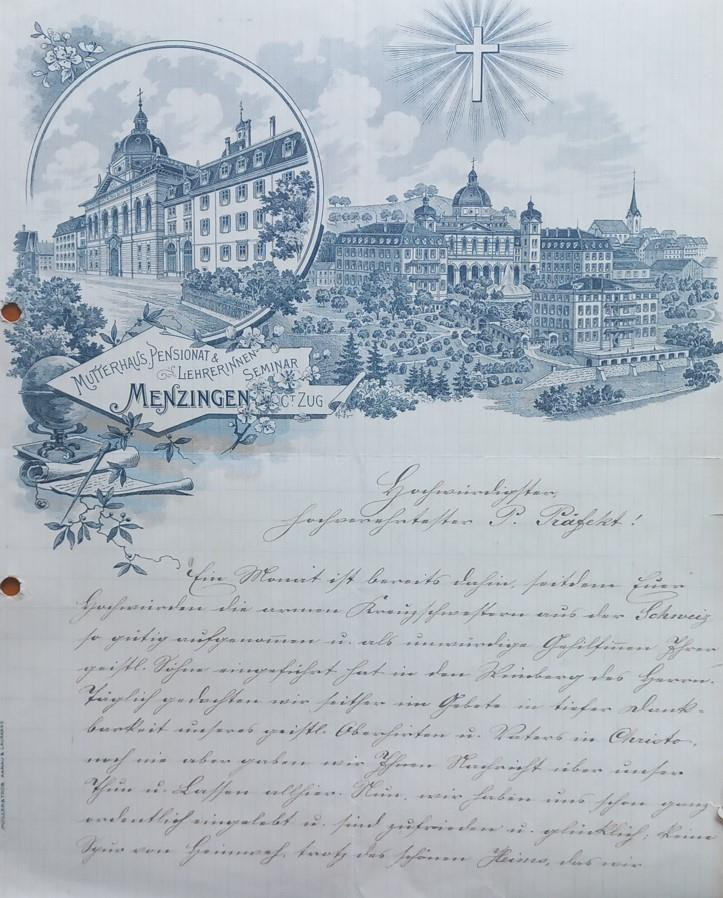 Mutterhaus, Pensionat &
Lehrerinnen-
Seminar
Menzingen Ct. Zug
Hochwürdigster,
hochverehrtester P. Präfekt!
Ein Monat ist bereits dahin, seitdem Euer
Hochwürden die armen Kreuzschwestern aus der Schweiz
so gütig aufgenommen u. als unwürdige Gehilfinnen Ihrer
geistl. Söhne eingeführt hat in den Weinberg des Herrn.
Täglich gedachten wir seither im Gebete in tiefer Dank-
barkeit unseres geistl. Oberhirten u. Vaters in Christo,
noch nie aber gaben wir Ihnen Nachricht über unser
Thun u. Lassen allhier. Nun, wir haben uns schon ganz
ordentlich eingelebt u. sind zufrieden u. glücklich; keine
Spur von Heimweh, trotz des schönen Heims, das wir